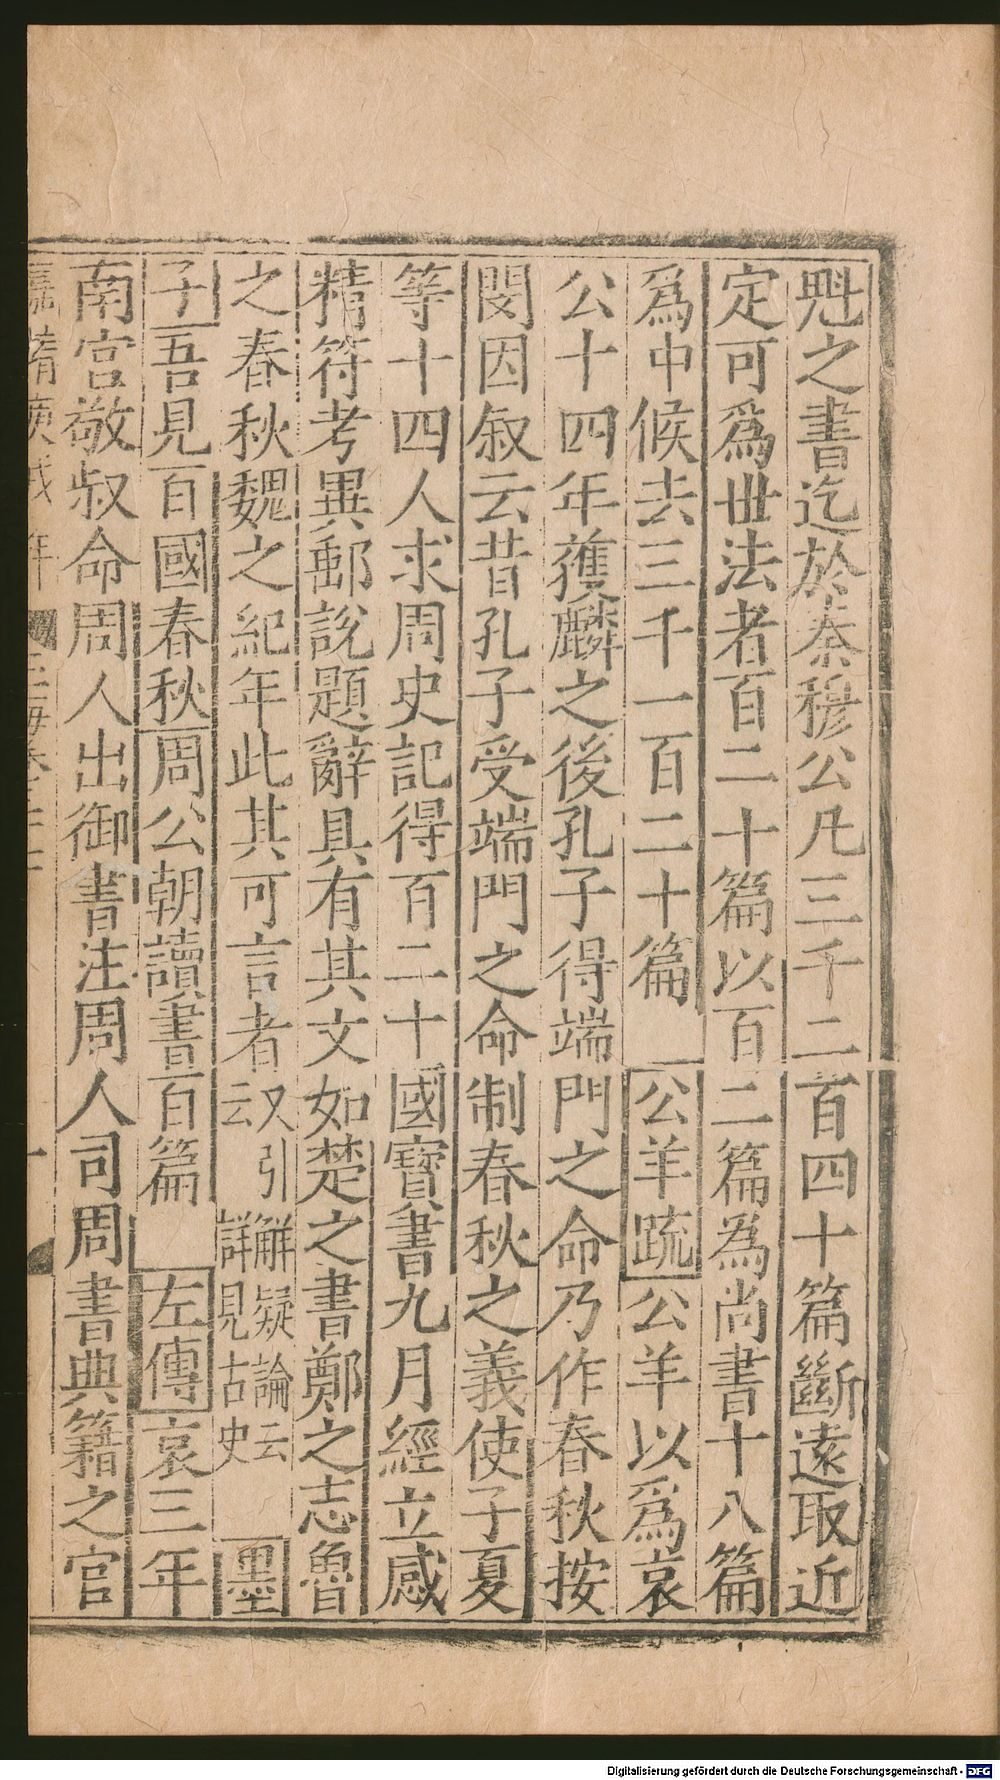 魁之書迄於秦穆公凡三千二百四十篇斷遠取近
定可爲丗法者百二十篇以百二篇為尚書十八篇
爲中候去三千一百二十篇 公羊疏公羊以爲哀
公十四年獲麟之後孔子得端門之命乃作春秋按
閔因叙云昔孔子受端門之命制春秋之義使子夏
等十四人求周史記得百二十國寶書九月經立感
精符考異郵說題辭具有其文如楚之書鄭之志魯
之春秋魏之紀年此其可言者又引解疑論云云詳見古史 墨
子吾見百國春秋周公朝讀書百篇 左傳哀三年
南宮敬叔命周人出御書注周人司周書典籍之官
Digitalisierung gefördert durch die Deutsche Forschungsgemeinschaft - DFG